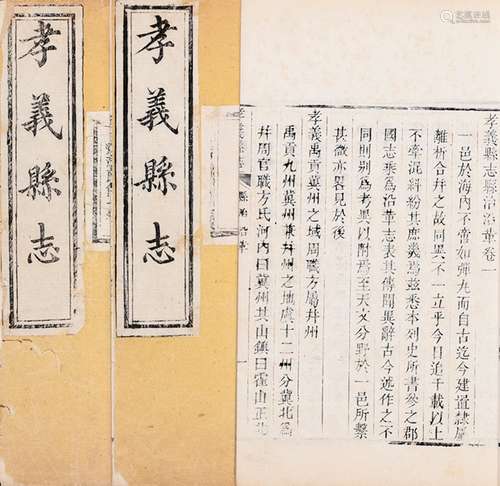 孝義縣志縣治沿革卷一
一邑於海內不啻如彈丸而自古迄今建置隸屬
離析合幷之故同異不一立乎今日追千載以上
不牽混糾紛其庶幾焉茲悉本列史所書參之郡
國志乘為沿革志表其傳聞異辭古今述作之不
同則別為考異以附焉至於天文分野於一邑所繫
甚微亦畧見於後
孝義禹貢冀州之域周職方屬幷州
禹貢九州冀州兼幷州之地虞十二州分冀北為
幷周官職方氏河內曰冀州其山鎮曰霍山正北
孝義縣志
縣治沿革
孝義縣志
孝義縣志